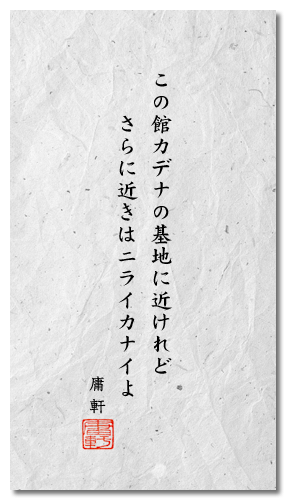 この館カデナの基地に近けれど
さらに近きはニライカナイよ
庸軒